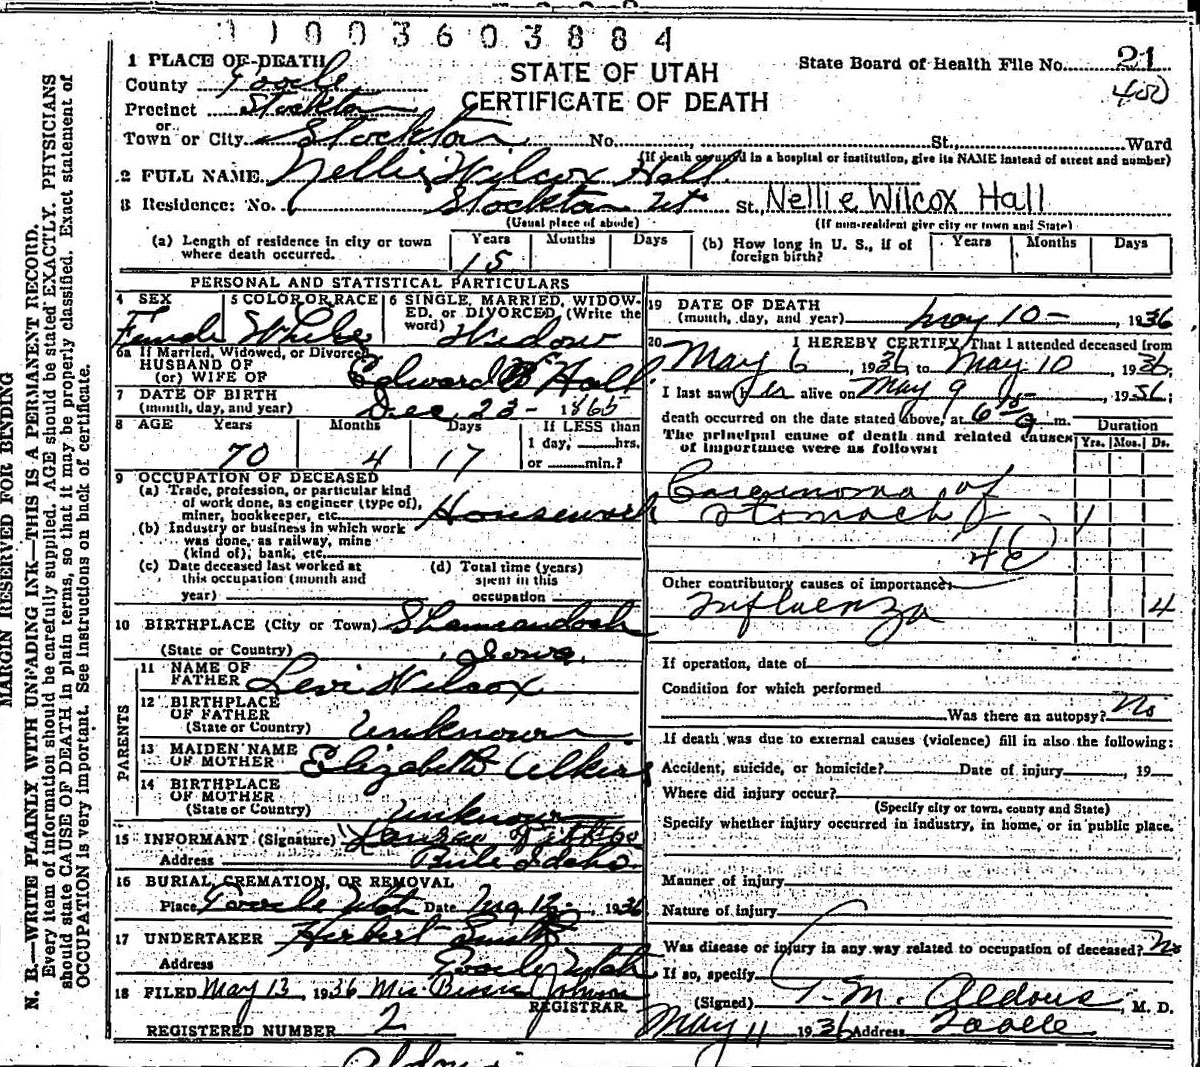 1 1 0 0 3 6 0 3 8 8 4
1 PLACE OF DEATH
County Tooele
Precinct Stockton
or
Town or City Stockton No. St., Ward
STATE OF UTAH
CERTIFICATE OF DEATH
State Board of Health File No. 21
400
(If death occurred in a hospital or institution, give its NAME instead of street and number)
2 FULL NAME Nellie Wilcox Hall
3 Residence: No. Stockton Ut St., Nellie Wilcox Hall
(Usual place of abode) (If non-resident give city or town and State)
(a) Length of residence in city or town where death occurred. Years 15 Months Days
(b) How long in U. S., if of foreign birth? Years Months Days
PERSONAL AND STATISTICAL PARTICULARS
4 SEX Female
5 COLOR OR RACE White
6 SINGLE, MARRIED, WIDOWED, or DIVORCED (Write the word) Widow
6a If Married, Widowed, or Divorced
HUSBAND OF
(or) WIFE OF Edward B Hall
7 DATE OF BIRTH
(month, day, and year) Dec 23- 1865
8 AGE Years 70 Months 4 Days 17
If LESS than
1 day, hrs.
or min.?
9 OCCUPATION OF DECEASED
(a) Trade, profession, or particular kind
of work done, as engineer (type of),
miner, bookkeeper, etc. Housework
(b) Industry or business in which work
was done, as railway, mine
(kind of), bank, etc.
(c) Date deceased last worked at
this occupation (month and
year)
(d) Total time (years)
spent in this
occupation
10 BIRTHPLACE (City or Town)
(State or Country) Iowa
PARENTS
11 NAME OF
FATHER Levi Wilcox
12 BIRTHPLACE
OF FATHER
(State or Country) Unknown
13 MAIDEN NAME
OF MOTHER Elizabeth
14 BIRTHPLACE
OF MOTHER
(State or Country) Unknown
15 INFORMANT (Signature)
Address Idaho
16 BURIAL, CREMATION, OR REMOVAL
Place Tooele Utah Date 12- , 1936
17 UNDERTAKER Herbert
Address Tooele Utah
18 FILED May 13, 1936 Mrs. Johnson
REGISTRAR.
REGISTERED NUMBER 2
19 DATE OF DEATH
(month, day, and year) May 10- , 1936
20 I HEREBY CERTIFY, That I attended deceased from
May 6 , 1936 to May 10 , 1936.
I last saw her alive on May 9 , 1936;
death occurred on the date stated above, at 6 m.
The principal cause of death and related causes
of importance were as follows:
Duration
Yrs. Mos. Ds.
Carcinoma of
Stomach 1
46
Other contributory causes of importance:
Influenza 4
If operation, date of
Condition for which performed
Was there an autopsy? No
If death was due to external causes (violence) fill in also the following:
Accident, suicide, or homicide? Date of injury , 19
Where did injury occur?
(Specify city or town, county and State)
Specify whether injury occurred in industry, in home, or in public place.
Manner of injury
Nature of injury
Was disease or injury in any way related to occupation of deceased? No
If so, specify
(Signed) T. M. Aldous , M. D.
May 11 1936 Address Tooele
Aldous
MARGIN RESERVED FOR BINDING
N. B.—WRITE PLAINLY WITH UNFADING INK—THIS IS A PERMANENT RECORD.
Every item of information should be carefully supplied. AGE should be stated EXACTLY. PHYSICIANS
should state CAUSE OF DEATH in plain terms, so that it may be properly classified. Exact statement of
OCCUPATION is very important. See instructions on back of certificate.